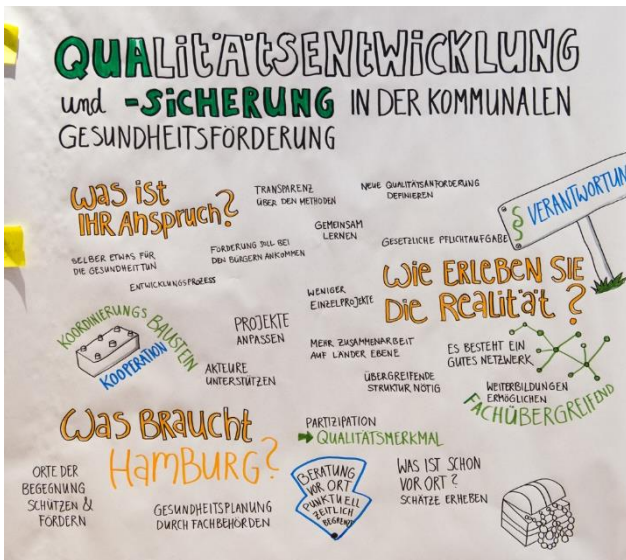 QUALITÄTSENTWICKLUNG
und -SICHERUNG IN DER KOMMUNALEN
GESUNDHEITSFÖRDERUNG
Was ist
IHR Anspruch?
TRANSPARENZ
ÜBER DEN METHODEN
NEUE QUALITÄTSANFORDERUNG
DEFINIEREN
GEMEINSAM
LERNEN
GESETZLICHE PFLICHTAUFGABE
§
VERANTWORTUN
SELBER ETWAS FÜR
DIE GESUNDHEIT TUN
FÖRDERUNG SOLL BEI
DEN BÜRGERN ANKOMMEN
ENTWICKLUNGSPROZESS
WIE ERLEBEN SIE
DIE REALITÄT?
WENIGER
EINZELPROJEKTE
KOORDINIERUNGS BAUSTEIN
KOOPERATION
PROJEKTE
ANPASSEN
AKTEURE
UNTERSTÜTZEN
MEHR ZUSAMMENARBEIT
AUF LÄNDER EBENE
ÜBERGREIFENDE
STRUKTUR NÖTIG
ES BESTEHT EIN
GUTES NETZWERK
WEITERBILDUNGEN
ERMÖGLICHEN
FACHÜBERGREIFEND
Was BRAUCHT
HamBURG?
PARTIZIPATION
➡ QUALITÄTSMERKMAL
ORTE DER
BEGEGNUNG
SCHÜTZEN &
FÖRDERN
GESUNDHEITSPLANUNG
DURCH FACHBEHÖRDEN
BERATUNG
VOR ORT
PUNKTUELL
ZEITLICH
BEGRENZT
WAS IST SCHON
VOR ORT?
SCHÄTZE ERHEBEN